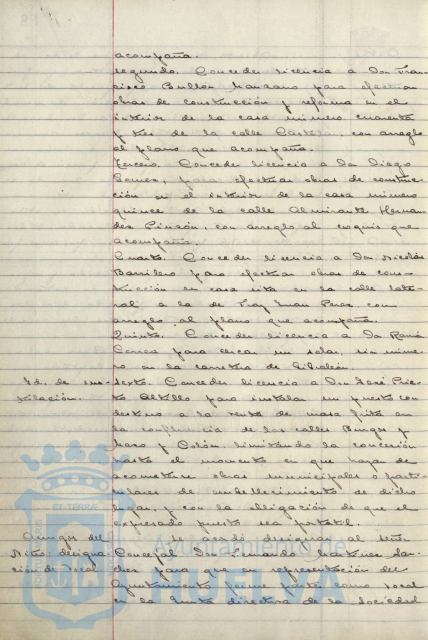 acompaña.
Segundo. Conceder licencia a Don Fran-
cisco Bultón Manzano para efectuar
obras de construcción y reforma en el
interior de la casa número cuarenta
y tres de la calle Castelar, con arreglo
al plano que acompaña.
Tercero. Conceder licencia a Don Diego
Gómez, para efectuar obras de construc-
ción en el interior de la casa número
quince de la calle Almirante Hernan-
dez Pinzón, con arreglo al croquis que
acompaña.
Cuarto. Conceder licencia a Don Nicolás
Barrilero para efectuar obras de cons-
trucción en casa sita en la calle late-
ral a la de Fray Juan Perez con
arreglo al plano que acompaña.
Quinto. Conceder licencia a Don Ramón
Correa para cercar un solar, sin núme-
ro en la carretera de Gibraleón
Id. de ins-
talación.
Sexto. Conceder licencia a Don José Prie-
to para instalar un puesto con
destino a la venta de masa frita en
la confluencia de las calles Burgos y
Mazo y Colón, limitando la concesión
hasta el momento en que hayan de
acometerse obras municipales o parti-
culares de embellecimiento de dicho
lugar, y con la obligación de que el
expresado puesto sea portátil.
Amigos del
Niño: designa-
ción de Vocal
Se acordó designar al Señor
Concejal Don Fernando Martinez San-
chez para que en representación del
Ayuntamiento forme parte como vocal
en la Junta directora de la Sociedad
Ayuntamiento de
HUELVA